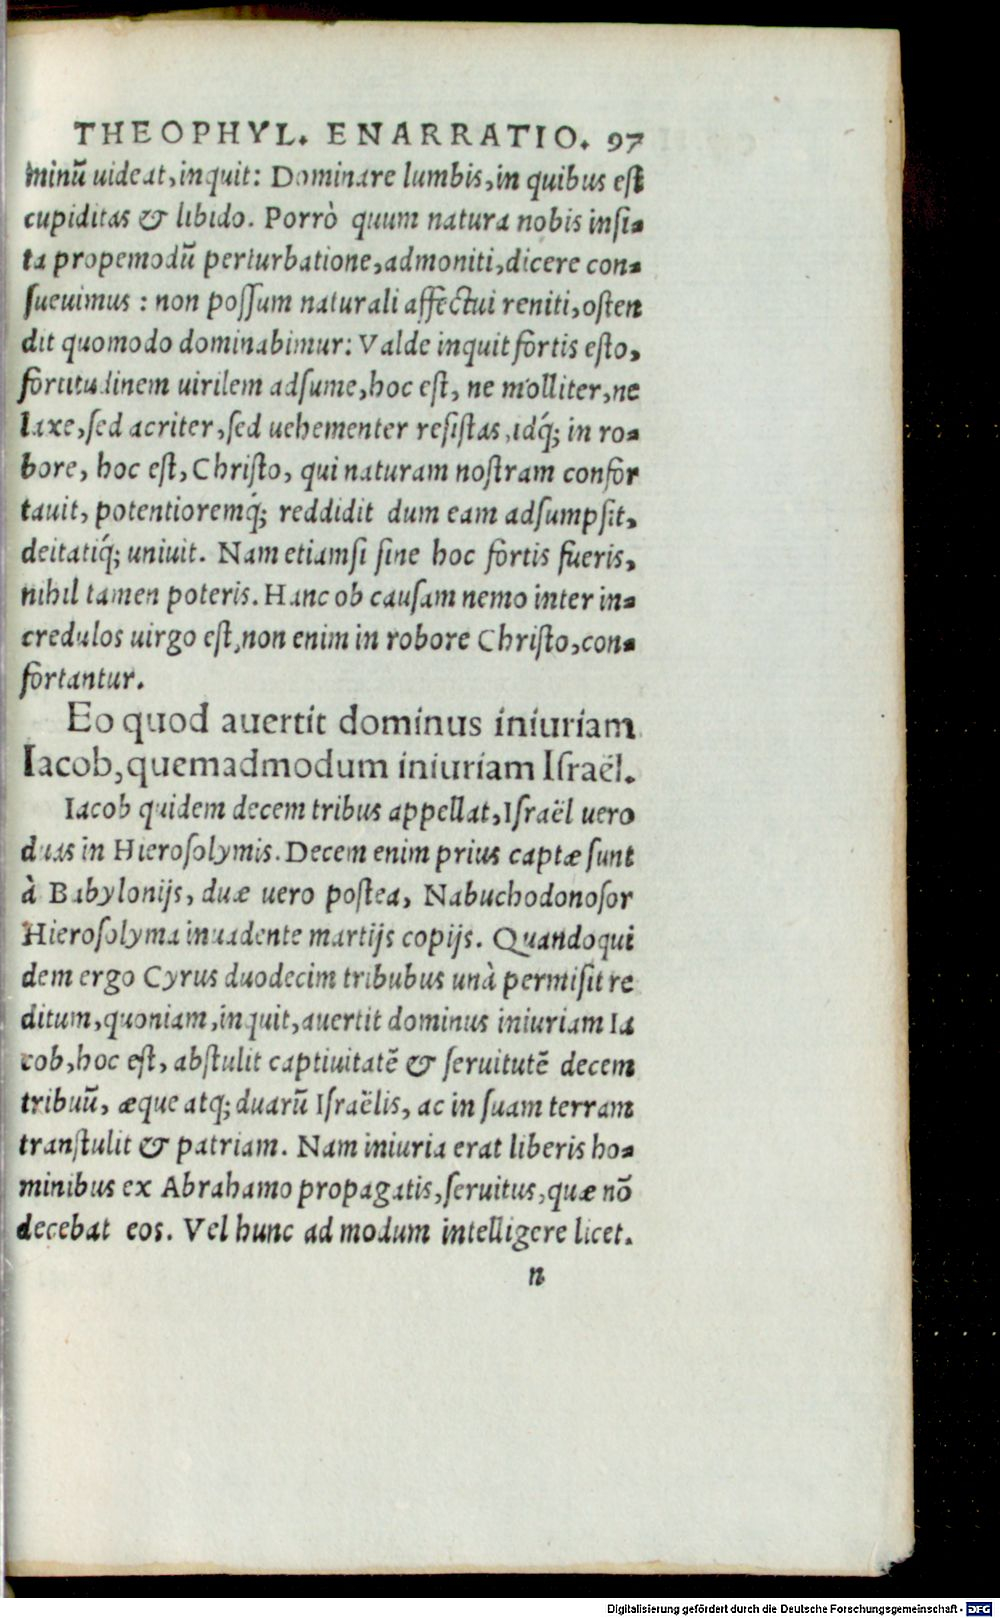 THEOPHYL. ENARRATIO. 97
minũ uideat, inquit: Dominare lumbis, in quibus est
cupiditas & libido. Porrò quum natura nobis insi-
ta propemodũ perturbatione, admoniti, dicere con-
sueuimus: non possum naturali affectui reniti, osten
dit quomodo dominabimur: Valde inquit fortis esto,
fortitudinem uirilem adsume, hoc est, ne molliter, ne
laxe, sed acriter, sed uehementer resistas, idq́; in ro-
bore, hoc est, Christo, qui naturam nostram confor
tauit, potentioremq́; reddidit dum eam adsumpsit,
deitatiq́; uniuit. Nam etiamsi sine hoc fortis fueris,
nihil tamen poteris. Hanc ob causam nemo inter in-
credulos uirgo est, non enim in robore Christo, con-
fortantur.
Eo quod auertit dominus iniuriam
Iacob, quemadmodum iniuriam Israël.
Iacob quidem decem tribus appellat, Israël uero
duas in Hierosolymis. Decem enim prius captæ sunt
à Babylonijs, duæ uero postea, Nabuchodonosor
Hierosolyma inuadente martijs copijs. Quandoqui
dem ergo Cyrus duodecim tribubus unà permisit re
ditum, quoniam, inquit, auertit dominus iniuriam Ia
cob, hoc est, abstulit captiuitatẽ & seruitutẽ decem
tribuũ, æque atq; duarũ Israëlis, ac in suam terram
transtulit & patriam. Nam iniuria erat liberis ho-
minibus ex Abrahamo propagatis, seruitus, quæ nõ
decebat eos. Vel hunc ad modum intelligere licet.
n
Digitalisierung gefördert durch die Deutsche Forschungsgemeinschaft - DFG